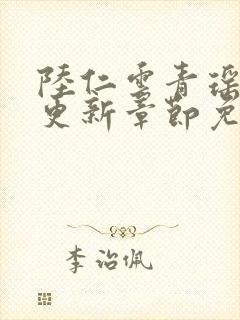 陸仁雲青瑶
更新章節免
李治佩